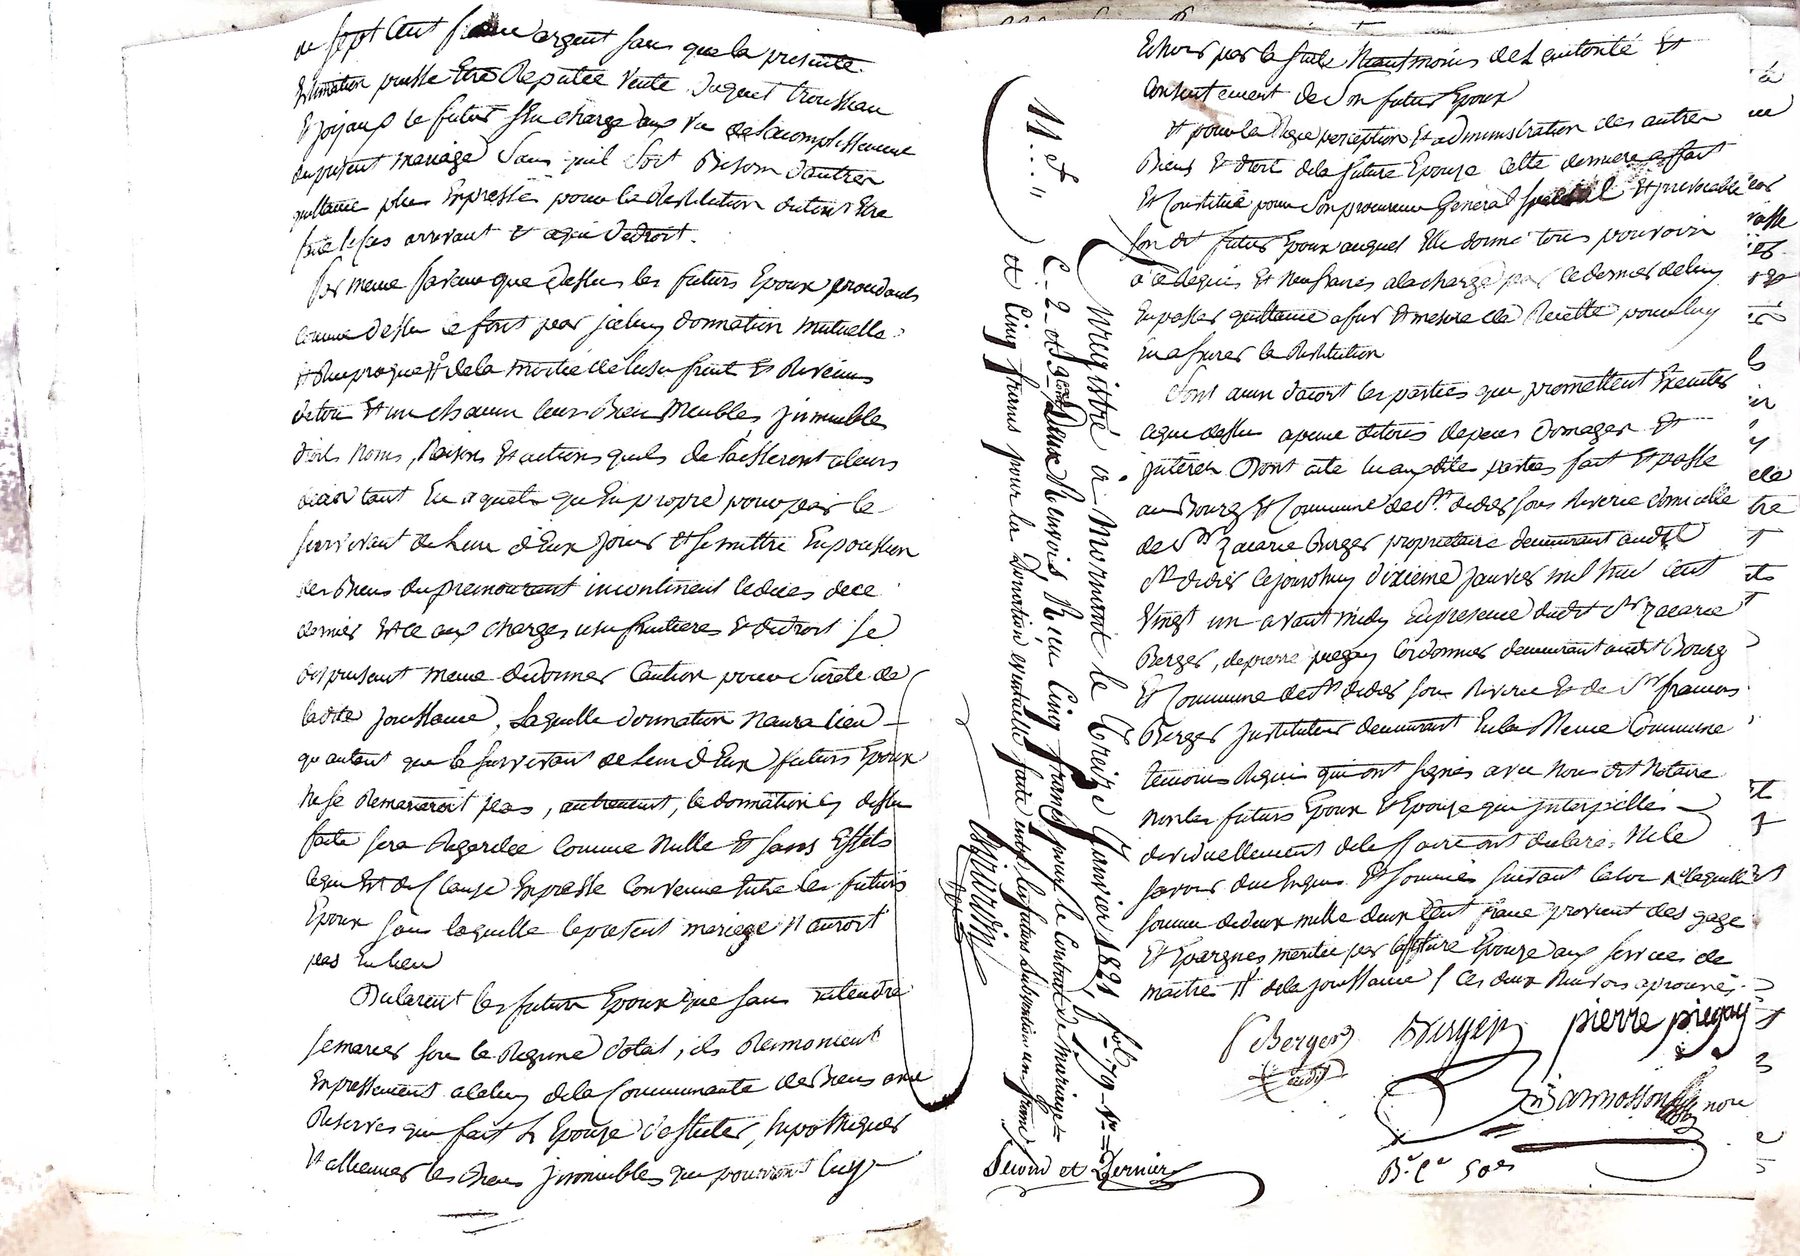 de sept cent franc argent sans que la presente
Estimation puisse Etre Reputée vente duquel trousseau
Et joyaux le futur sera chargé aux vu de lacomplissement
du present mariage Sans quil Soit Besoin dautres
quittance plus Expresse pour la Restitution
le cas arrivant Et a qui de droit.
Par meme faveur que dessus les futurs Epoux procedants
comme dessus se font par jceluy donnation mutuelle
et Reciproque # de la moitié de lusufruit Et Revenus
de tous Et un chacun leurs Bien Meubles jmmeubles
droits Noms, Raisons Et actions quils delaisseront a leurs
tant En aquets qu En propre pour par le
survivant de Lun dEux jouir Et se mettre En possession
des Biens du premourant incontinent le deces de ce
dernier Et ce aux charges usufruitieres Et de droit se
dispensent meme de donner Caution pour Sureté de
ladite jouissance, Laquelle donnation Naura lieu
qu autant que le survivant de Lun dEux futurs Epoux
ne se Remarieroit pas, autrement, la donnation cy dessus
faite sera Regardée Comme Nulle Et sans Effets
ce qui Est de Clause Expresse Convenue Entre les futurs
Epoux sans laquelle le present mariage N auroit
pas Eu lieu
Declarent les futurs Epoux que sans Entendre
se marier sous le Regime dotal, ils Renoncent
Expressement a celuy de la Communauté des Biens avec
Reserves que fait L Epouse d'affecter, hipothequer
Et alliener les Biens jmmeubles que pourront luy
Echoir par la suite Neautmoins de L autorité Et
Consentement de Son futur Epoux
Et pour la Regie perception Et administration des autres
Biens Et droit de la future Epouse cette derniere a fait
Et Constitué pour Son procureur General Special Et jrrevocable
son dt futur Epoux auquel Elle donne tous pouvoir
a ce Requis Et Necessaires a la charge par ce dernier de luy
En passer quittance a fur Et mesure de la Recette pour luy
En assurer la Restitution
Dont aussi dacort les parties que promettent Executer
ce que dessus a peine de tous depens domages Et
jnterets Dont acte lu aux dites parties fait Et passé
au Bourg Et Commune de St. didier sous Riverie domicille
de Sr Zacarie Berger proprietaire demeurant audit
St didier ce jourdhuy dixieme janvier mil huit cent
Vingt un avant midy En presence dudit Sr Zacarie
Berger, de pierre piegay Cordonnier demeurant audit Bourg
Et Commune de St didier sous Riverie Et de Sr francois
Berger Jnstituteur demeurant En la Meme Commune
temoins Requis qui ont signés avec Nous dt Notaire
non les futurs Epoux Et Epouse qui jnterpellés
dividuellement de le faire ont declaré, Ne le
savoir de ce Enquis Et sommés suivant la loi # laquelle
somme de deux mille deux cent franc provient des gage
Et Epargnes meritée par la future Epouse aux services de
maitres # de la jouissance / Ces deux Renvois aprouvés.
F Berger
Berger
pierre piegay
nore
Br Cn 50es
Enregistré a Mornant le Treize Janvier 1821, fol 79 - Vo
C. 2 et 3 Deux Renvois Reçu Cinq francs pour le Contrat de Mariage
et Cinq francs pour la Donation eventuelle faite entre les futurs Subvention un franc
Second et Dernier